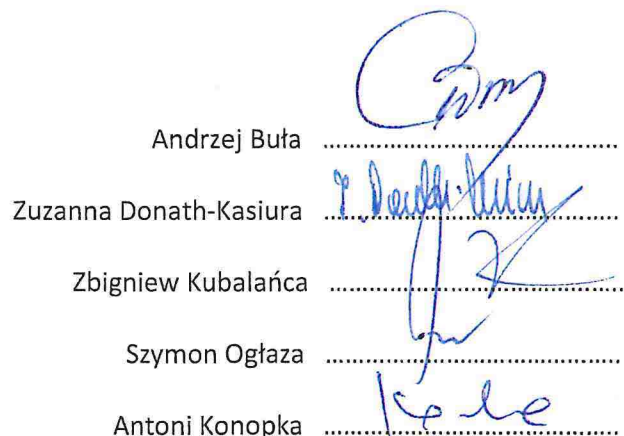 Andrzej Buła ..........................................
Zuzanna Donath-Kasiura ..........................................
Zbigniew Kubalańca ..........................................
Szymon Ogłaza ..........................................
Antoni Konopka ..........................................